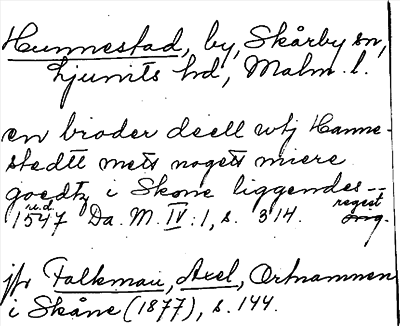 Hunnestad, by, Skårby sn,
Ljunits hd, Malm. l.
en broder deell utj Hanne-
stedtt mett nogett miere
goedtz i Skone liggendes --
u.d. regest
1547 Da. M. IV:1, s. 314. orig.
jfr Falkman, Axel, Ortnamnen
i Skåne (1877), s. 144.